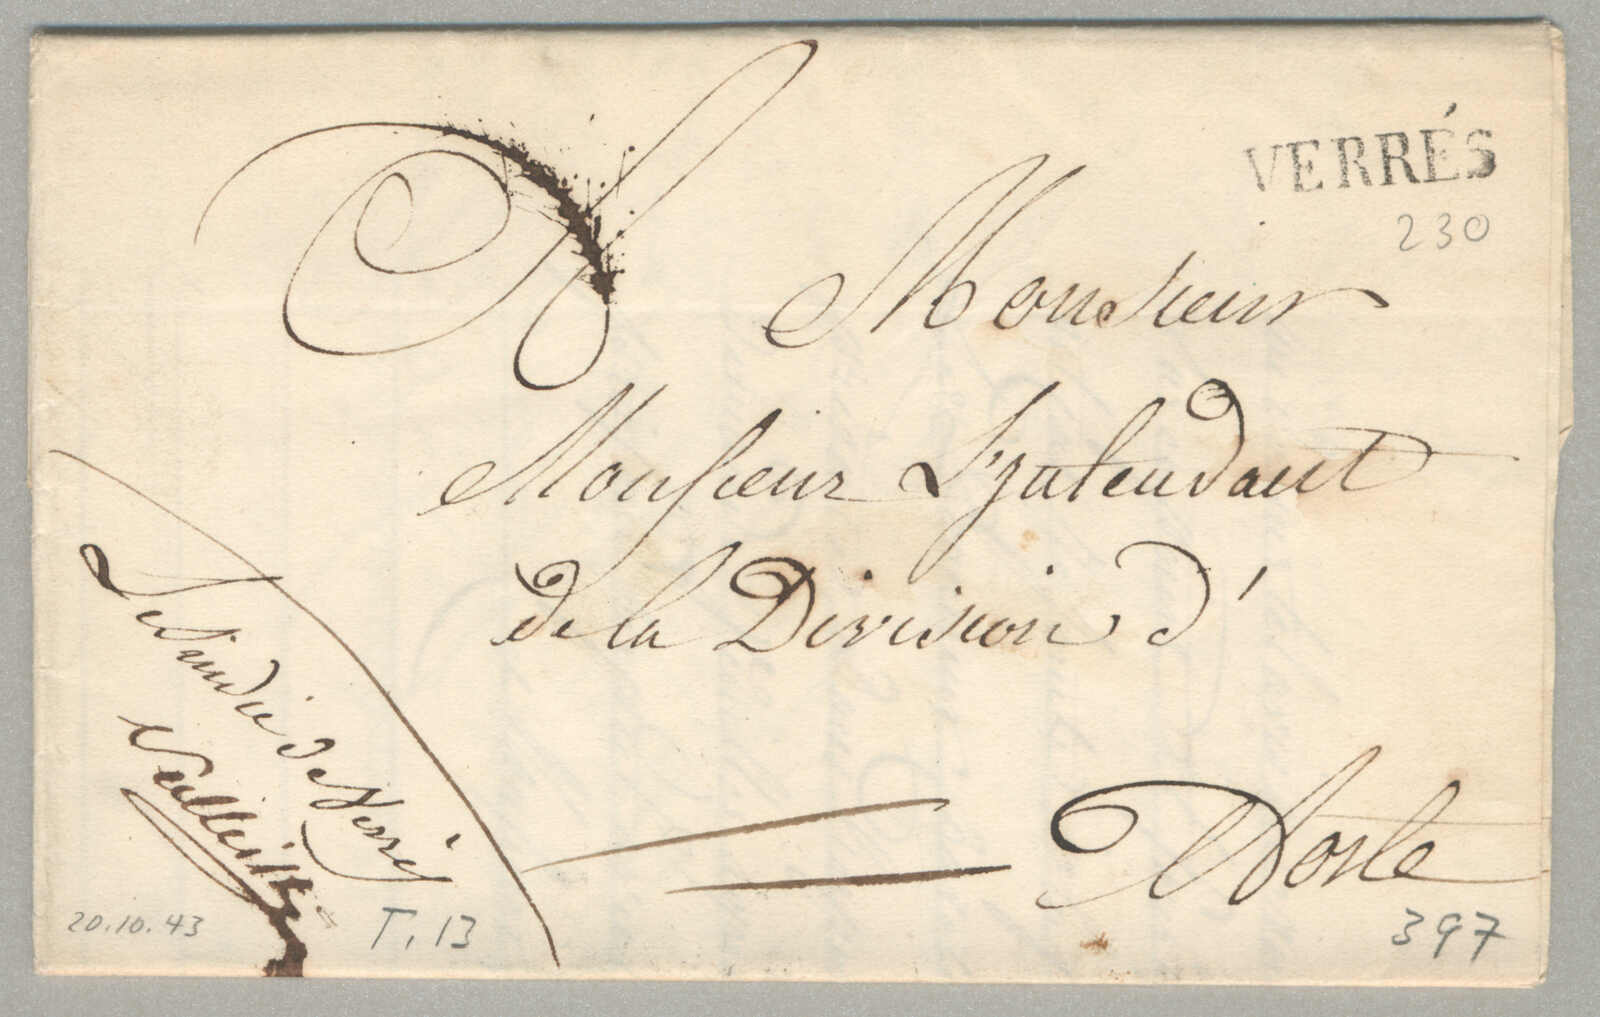 VERRÉS
230
A Monsieur
Monsieur L'Intendant
de la Division d'
Aoste
Le Sindic de Verrés
20.10.43
T. 13
397